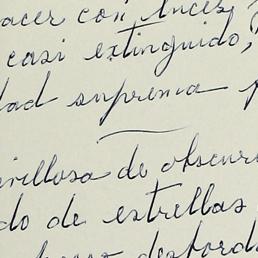 acer con luces
casi extinguido,
dad suprema p
villosa de obscuri
do de estrellas
desborda